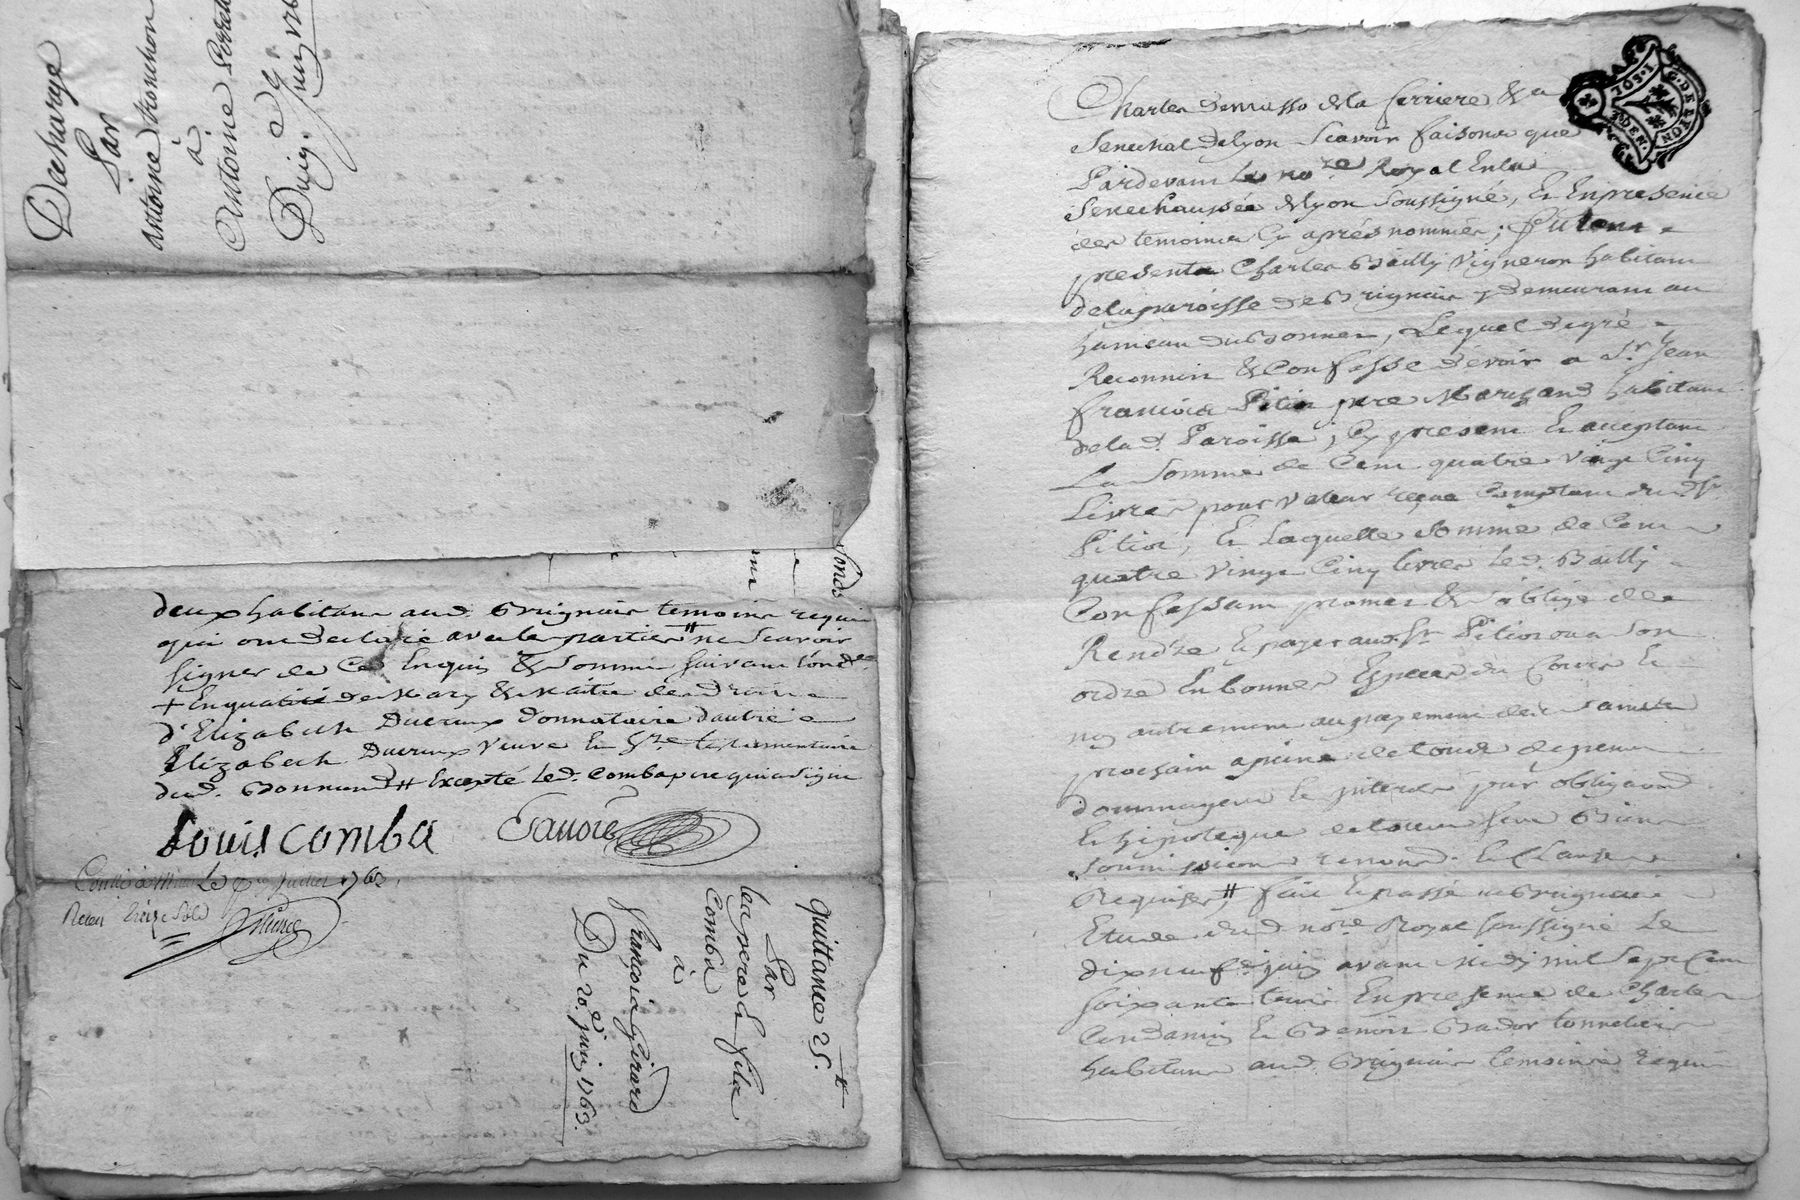 Decharge
Par
antoine tronchon
à
Antoine Perret
Du 19.e Juin 176
fonds
deux habitans aud. Brignais temoins requis
qui ont declaré avec les parties ⧺ ne scavoir
signer de ce Enquis & sommé suivant l'ord.ce
+ En qualité de Mary & Maitre des droits
d'Elizabeth Ducreux donnataire d'autre
Elizabeth Ducreux veuve & h.re testamentaire
dud. Bonnand ⧺ Excepté led. Comba pere qui a signé
Louis comba
Controllé à le Juillet 1763,
Receu treize sols
quittance 25.tt
Par
les pere et fils
Comba
à
François Girard
Du 20.e juin 1763.
Charles Demasso de la ferriere &a
Senechal de Lyon Scavoir faisons que
Pardevant le no.re Royal En la
Senechaussée de Lyon soussigné, Et En presence
des temoins Cy aprés nommés; fut
present Charles Bailly Vigneron habitant
de la paroisse de Brignais y demeurant au
hameau du Bonnet, Lequel de gré
Reconnoit & Confesse devoir a S.r Jean
François Pitiot pere Marchand habitant
de lad. Paroisse, Cy present Et acceptant
La somme de Cent quatre vingt Cinq
Livres pour valeur reçue Comptant dud. Sr.
Pitiot, Et Laquelle somme de Cent
quatre vingt Cinq livres led. Bailly
Confessant promet & s'oblige de
Rendre Et payer aud. Sr. Pitiot ou a son
ordre En bonnes Especes du Cours Et
non autrement au payement des saints
prochain a peine de tous depens
dommages Et interets par obligaon.
Et hipoteque de tous ses Biens
soumissions renond. Et Clauses
Requises, ⧺ fait Et passé a Brignais
Etude dud. no.re Royal soussigné Le
dix neuf juin avant midy mil sept Cent
soixante trois En presence de Charles
Condamin Et Benoit Bador tonneliers
habitans aud. Brignais temoins requis